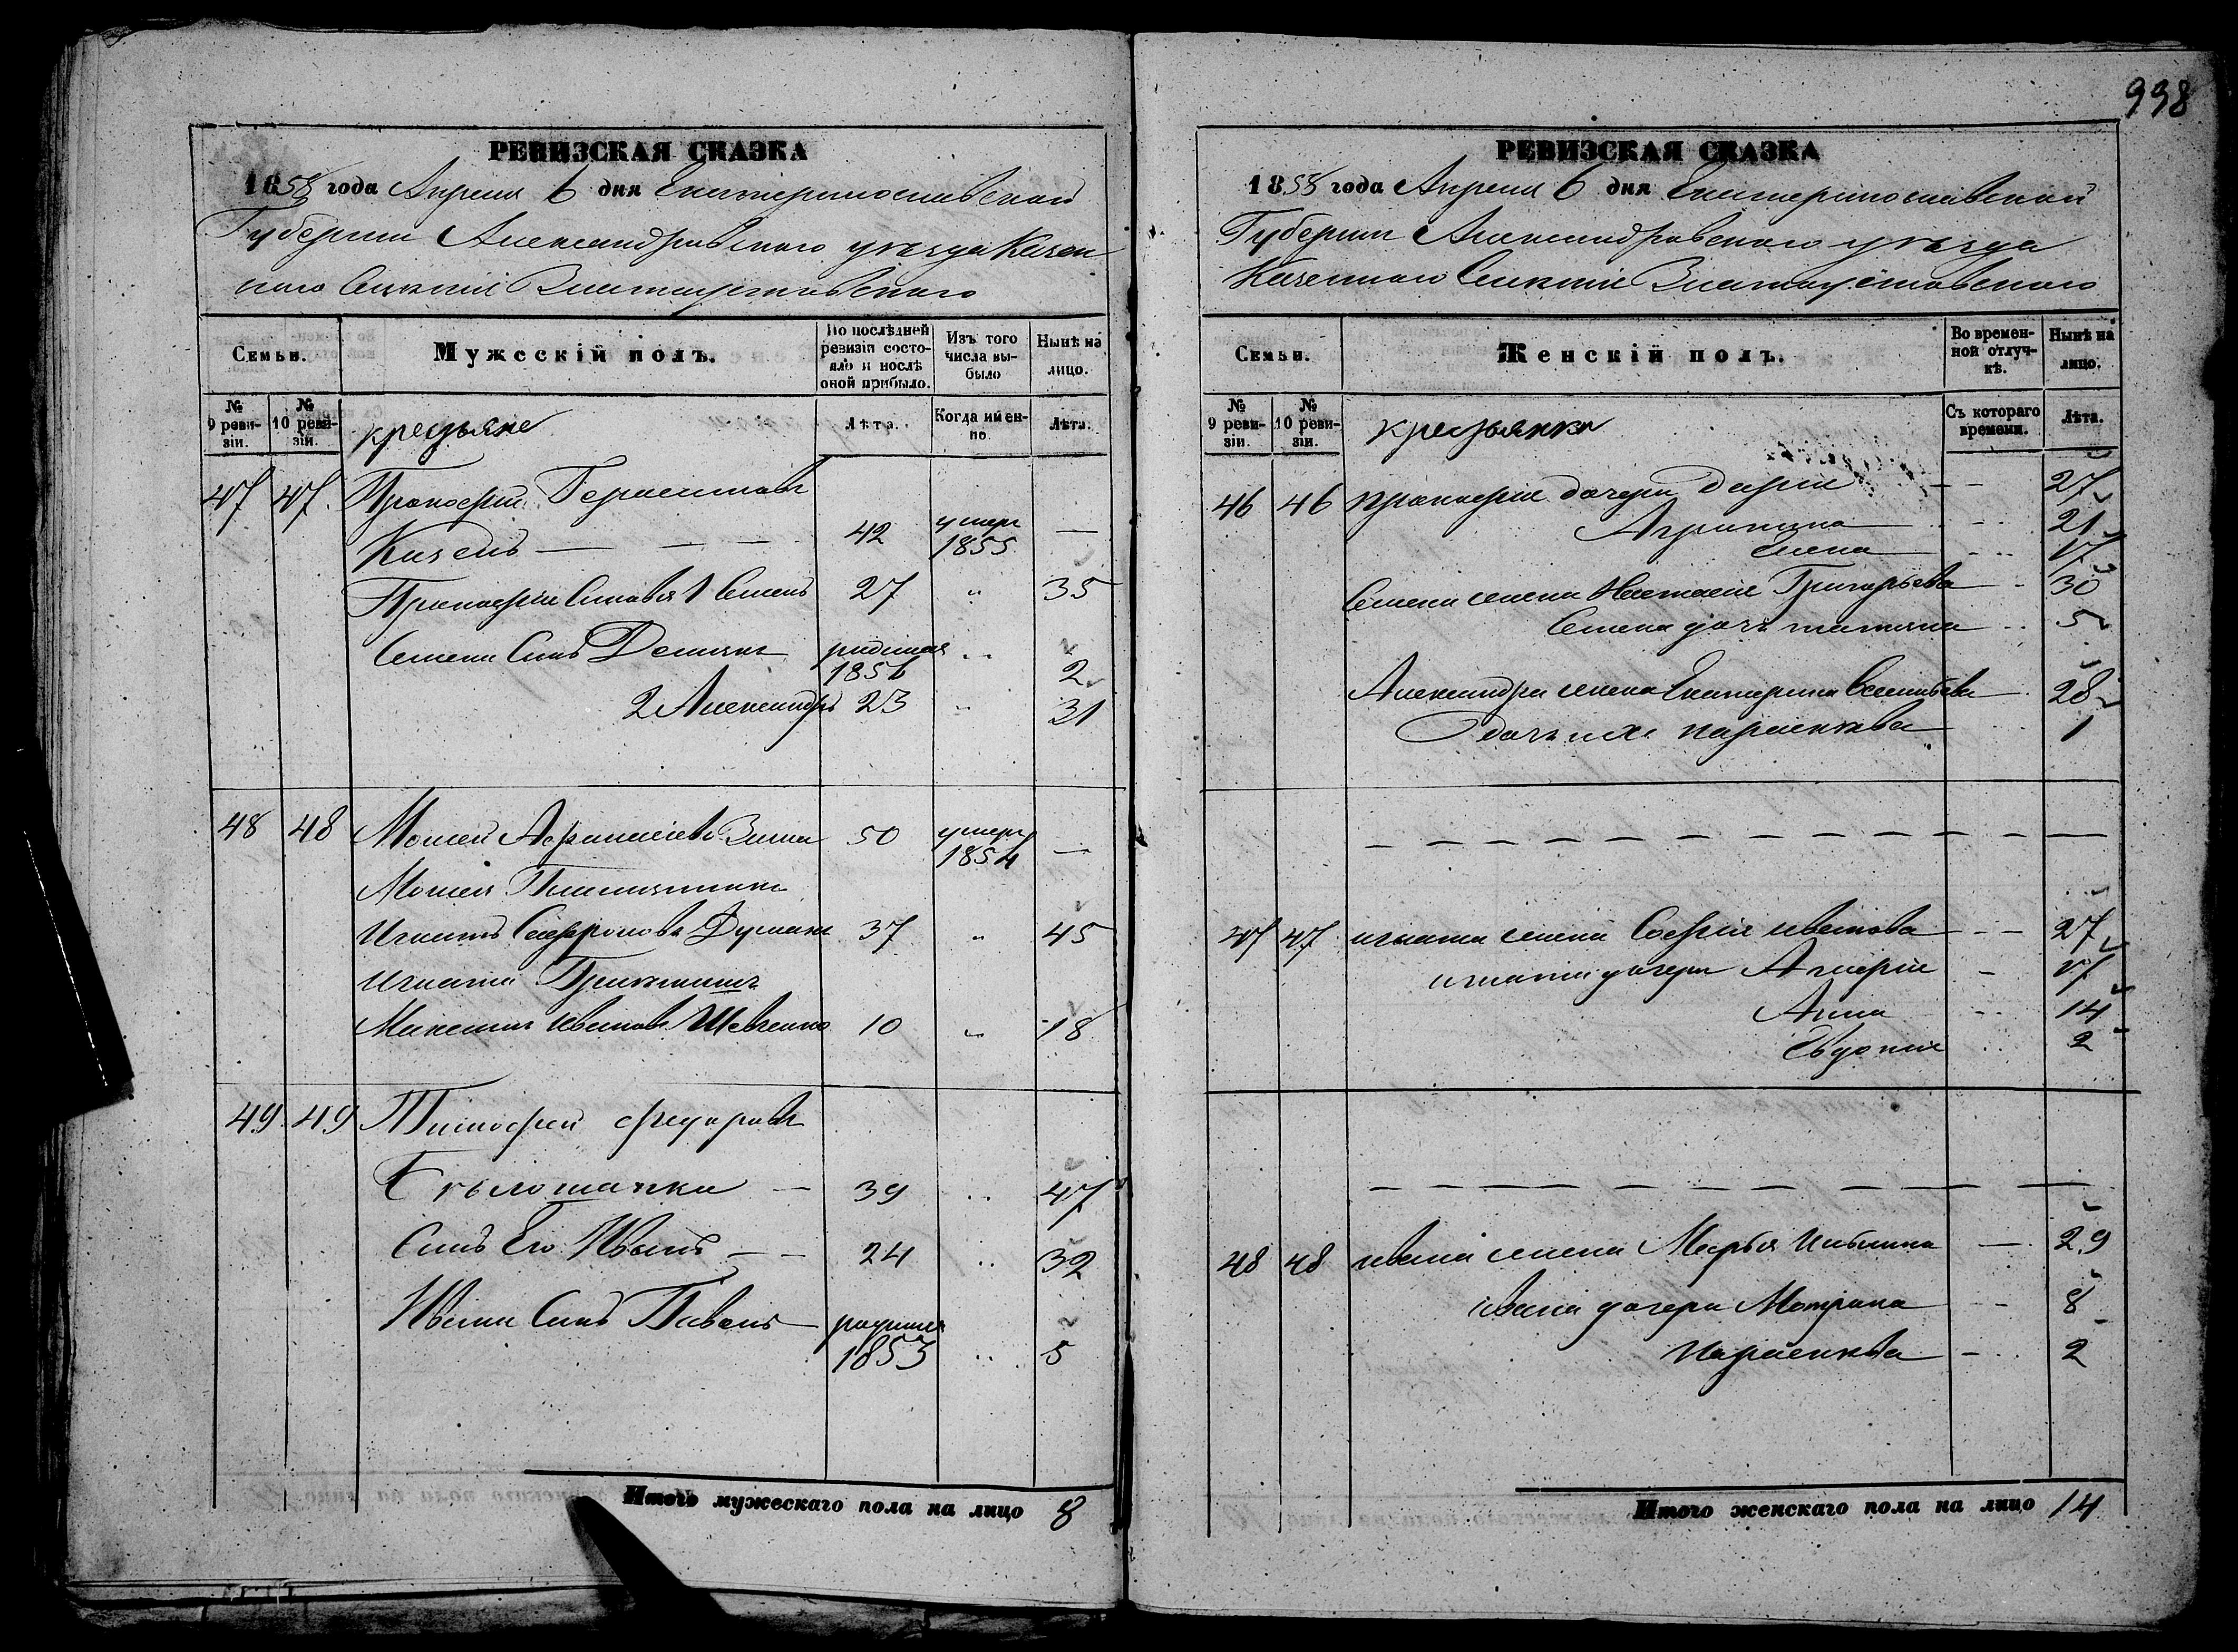 998
РЕВИЗСКАЯ СКАЗКА
1858 года Апреля 6 дня Екатеринославской
Губернии Александровского уезда Казен
ного Селения Златоустовского
Семьи.
Мужескій полъ.
По послѣдней ревизіи состояло и послѣ оной прибыло.
Изъ того числа выбыло
Нынѣ на лицо.
№ 9 ревизіи.
№ 10 ревизіи.
крестьяне
Лѣта.
Когда именно.
Лѣта.
47 47. Прокофий Герасимовъ
Кизель — — — 42 умеръ 1855 —
Прокофия Сыновья 1 Семенъ 27 " 35
Семена Сынъ Демьянъ родился 1856 " 2
2 Александръ 23 " 31
48 48 Моисей Афанасьевъ Зима 50 умеръ 1854 —
Моисея
Игнатъ Сафроновъ Думанъ 37 " 45
Игната
Максимъ Ивановъ Шевченко 10 " 18
49. 49 Тимофей Федоровъ
Бѣлошапка — 39 " 47
Сынъ Его Иванъ — — 24 " 32
Ивана Сынъ Павелъ — родился 1853 " 5
Итого мужескаго пола на лицо 8
РЕВИЗСКАЯ СКАЗКА
1858 года Апреля 6 дня Екатеринославской
Губернии Александровского уезда
Казенного Селения Златоустовского
Семьи.
Женскій полъ.
Во временной отлучкѣ.
Нынѣ на лицо.
№ 9 ревизіи.
№ 10 ревизіи.
крестьянки
Съ котораго времени.
Лѣта.
46 46 Прокофия дочери Дария — — 27
Агрипина — 21
Елена — 17
Семена жена Настасия Григорьева — 30
Семена дочь татьяна 5
Александра жена Екатерина Савельева — 28
дочь их парасковея 1
— — — — — — — — — — — —
47 47 игната жена София иванова — — 27
игната дочери Агафия — 17
Анна 14
Евдокия 2
— — — — — — — — — — — —
48 48 ивана жена Марья Ильина — 29
ивана дочери Матрина — 8
парасковея — 2
Итого женскаго пола на лицо 14